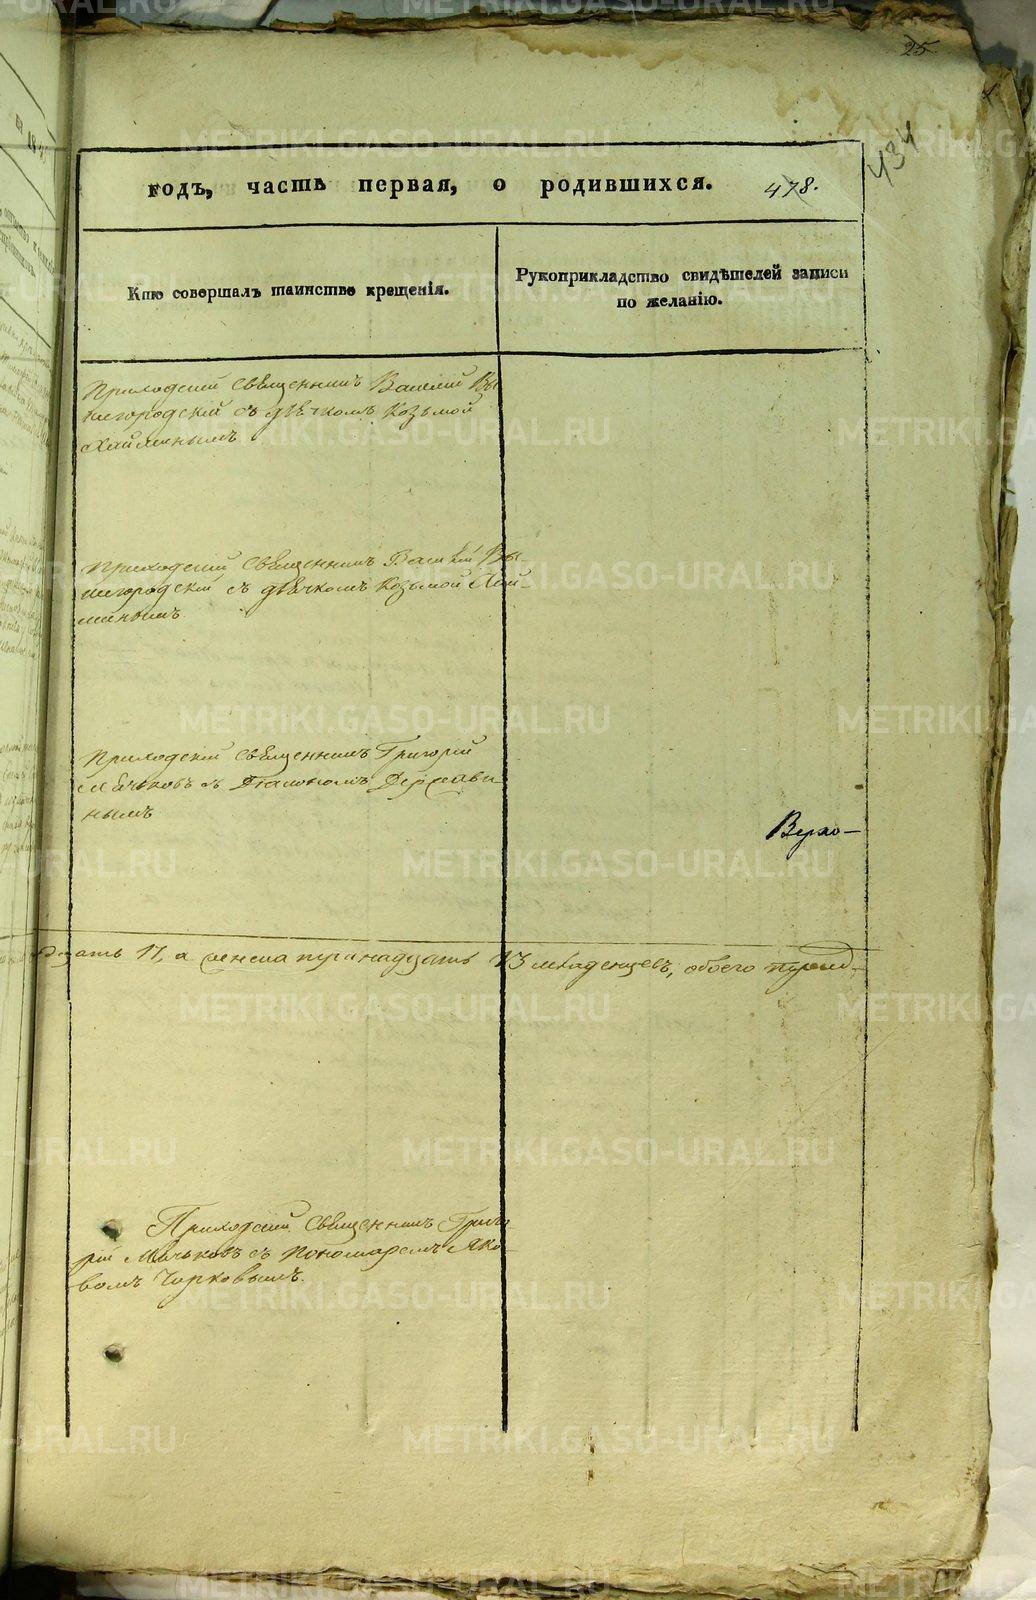 25.
434
годъ, часть первая, о родившихся. 478.
Кто совершалъ таинство крещенія.
Рукоприкладство свидѣтелей записи
по желанію.
Приходскій священникъ Василій Вы
шгородскій съ дьячкомъ Козьмой
Приходскій священникъ Василій Вы-
шгородскій съ дьячкомъ Козьмой Хай-
миным
Приходскій священникъ Григорій
Мячковъ съ Діакономъ Держави
нымъ
Верхо-
дцать 17, а женска тринадцать 13 младенцевъ, обоего
Приходскій священникъ Григо
рій Мячковъ съ пономаремъ Яко
вомъ Чирковымъ.
METRIKI.GASO-URAL.RU